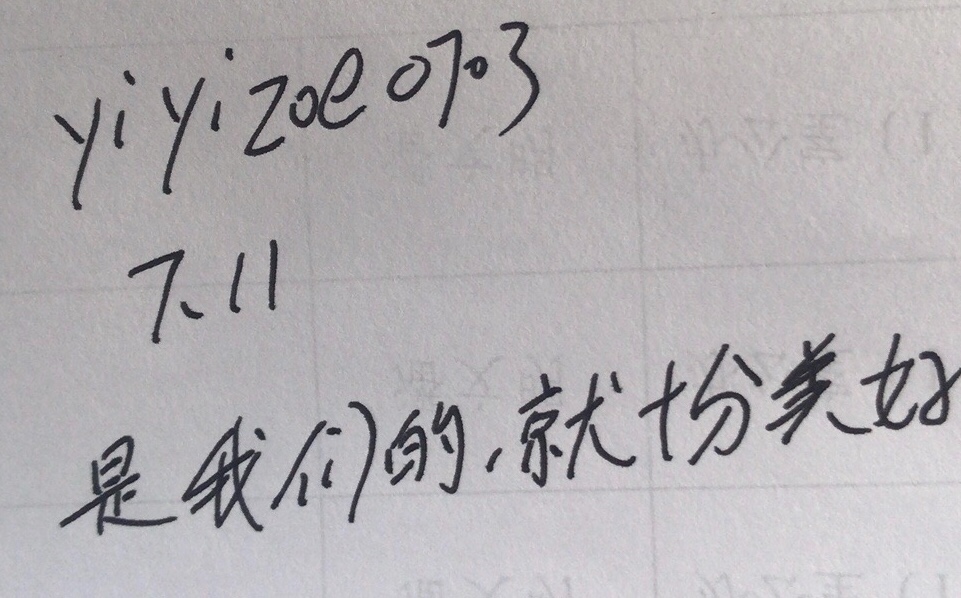 yiyizoe0703
7.11
是我们的,就十分美好